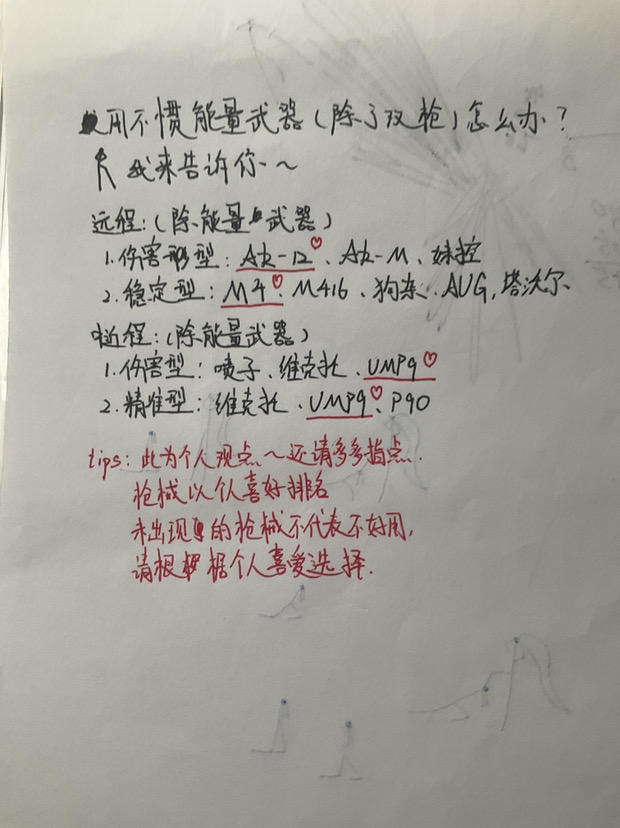 用不惯能量武器(除了双枪)怎么办?
我来告诉你~
远程:(除能量武器)
1.伤害型:AK-12♡、AK-M、妹控
2.稳定型:M4♡、M416、狗杂、AUG,塔沃尔
近程:(除能量武器)
1.伤害型:喷子、维克托、UMP9♡
2.精准型:维克托、UMP9♡、P90
tips:此为个人观点~还请多多指点.
枪械以个人喜好排名
未出现的枪械不代表不好用,
请根据个人喜爱选择.